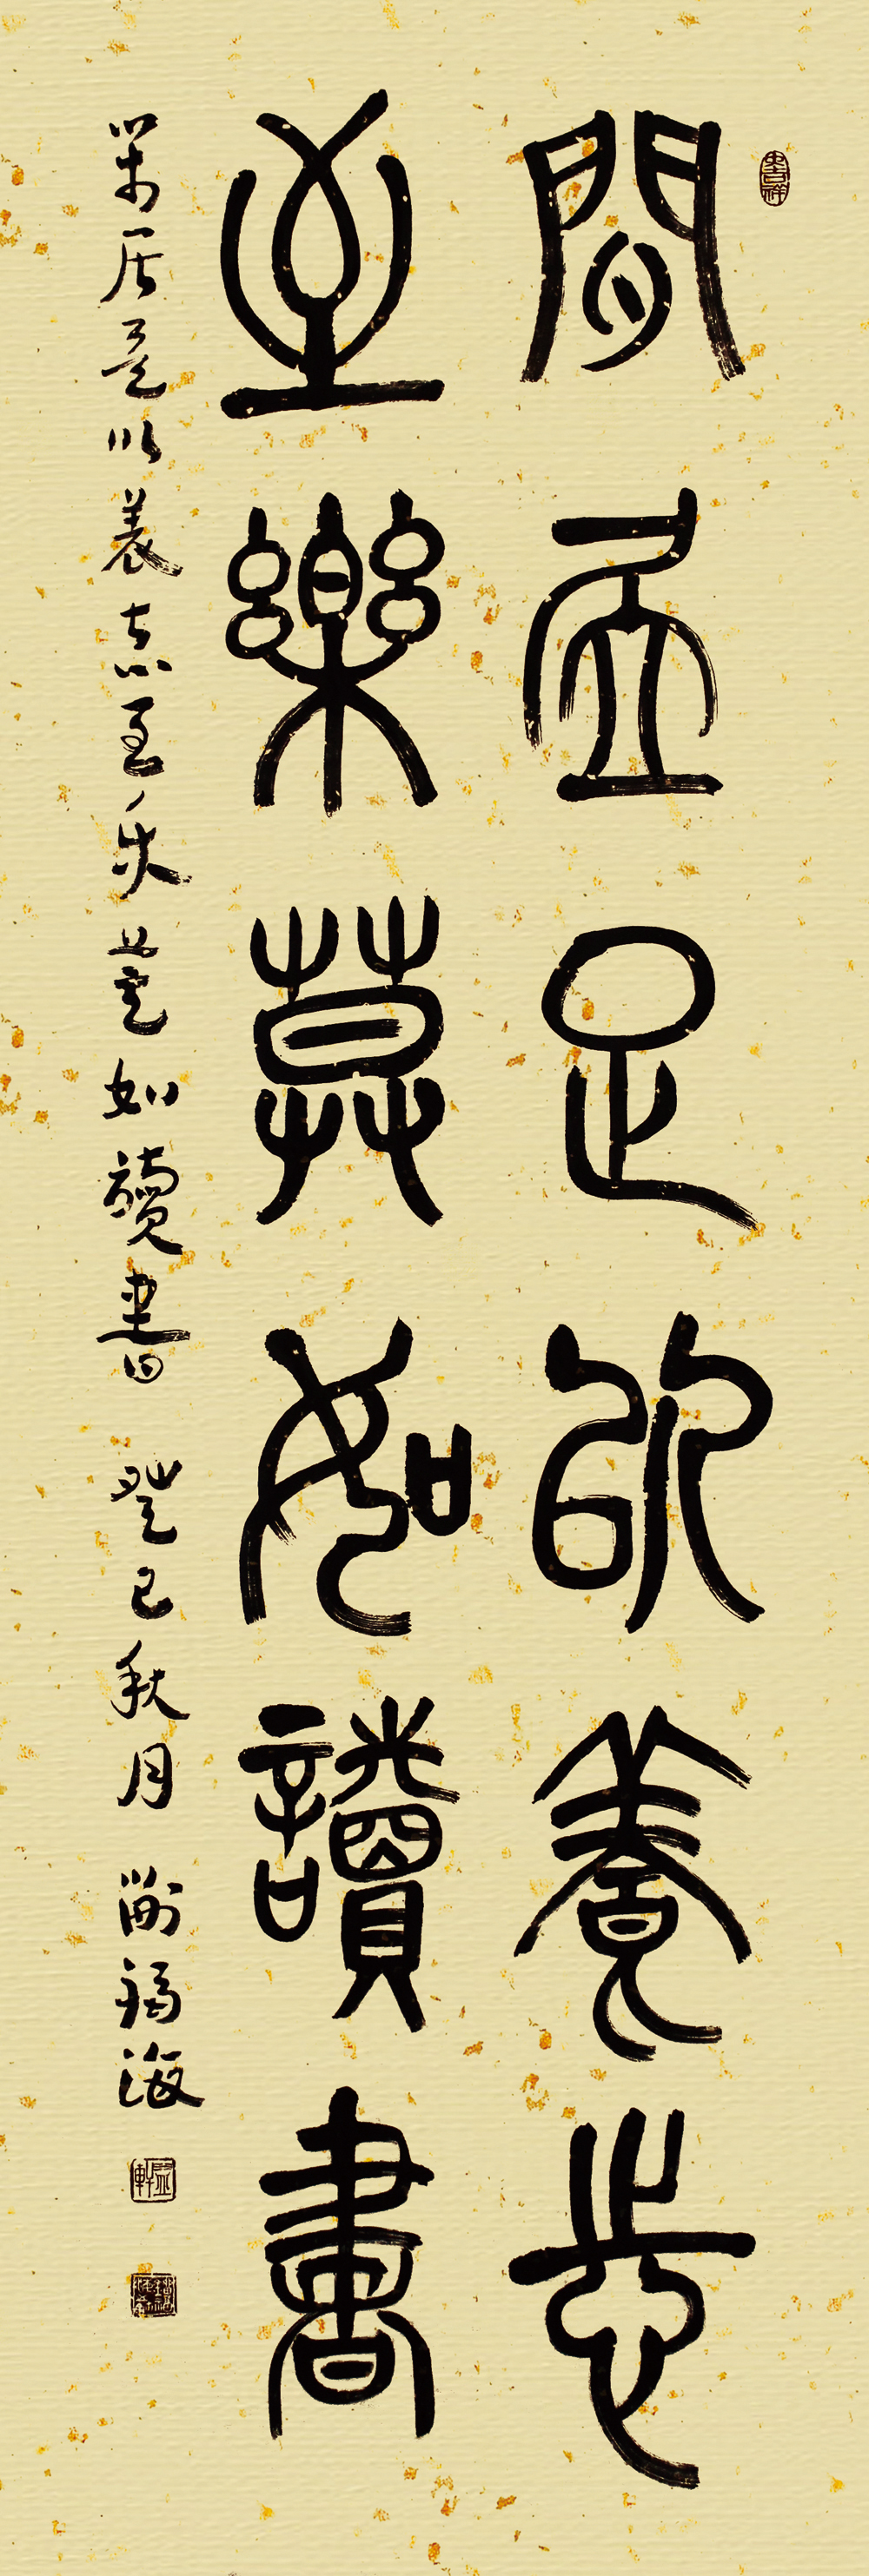 閒居足以養志
至樂莫如讀書
閒居足以養志至樂莫如讀書 癸巳秋月 福海